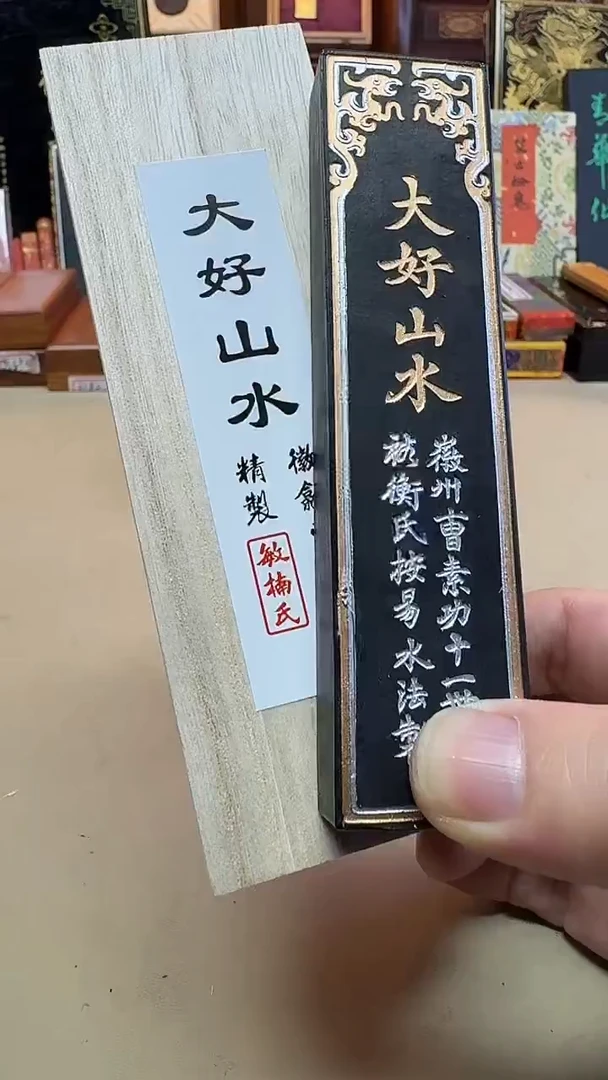 大好山水
精製
敏楠氏
大好山水
徽州曹素功十一
衡氏按易水法製